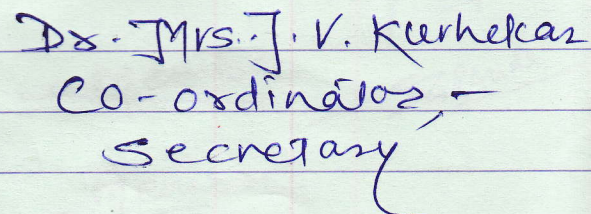 Dr. [Mrs.]. J. V. Kurhekar
Co-ordinator, -
Secretary